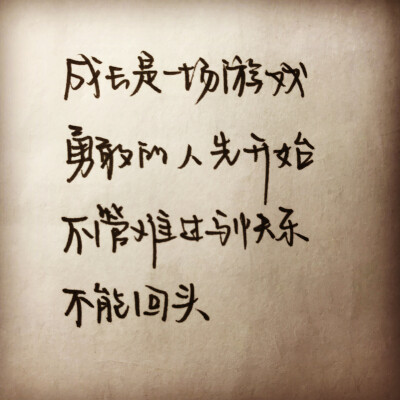 成长是一场游戏
勇敢的人先开始
不管难过与快乐
不能回头